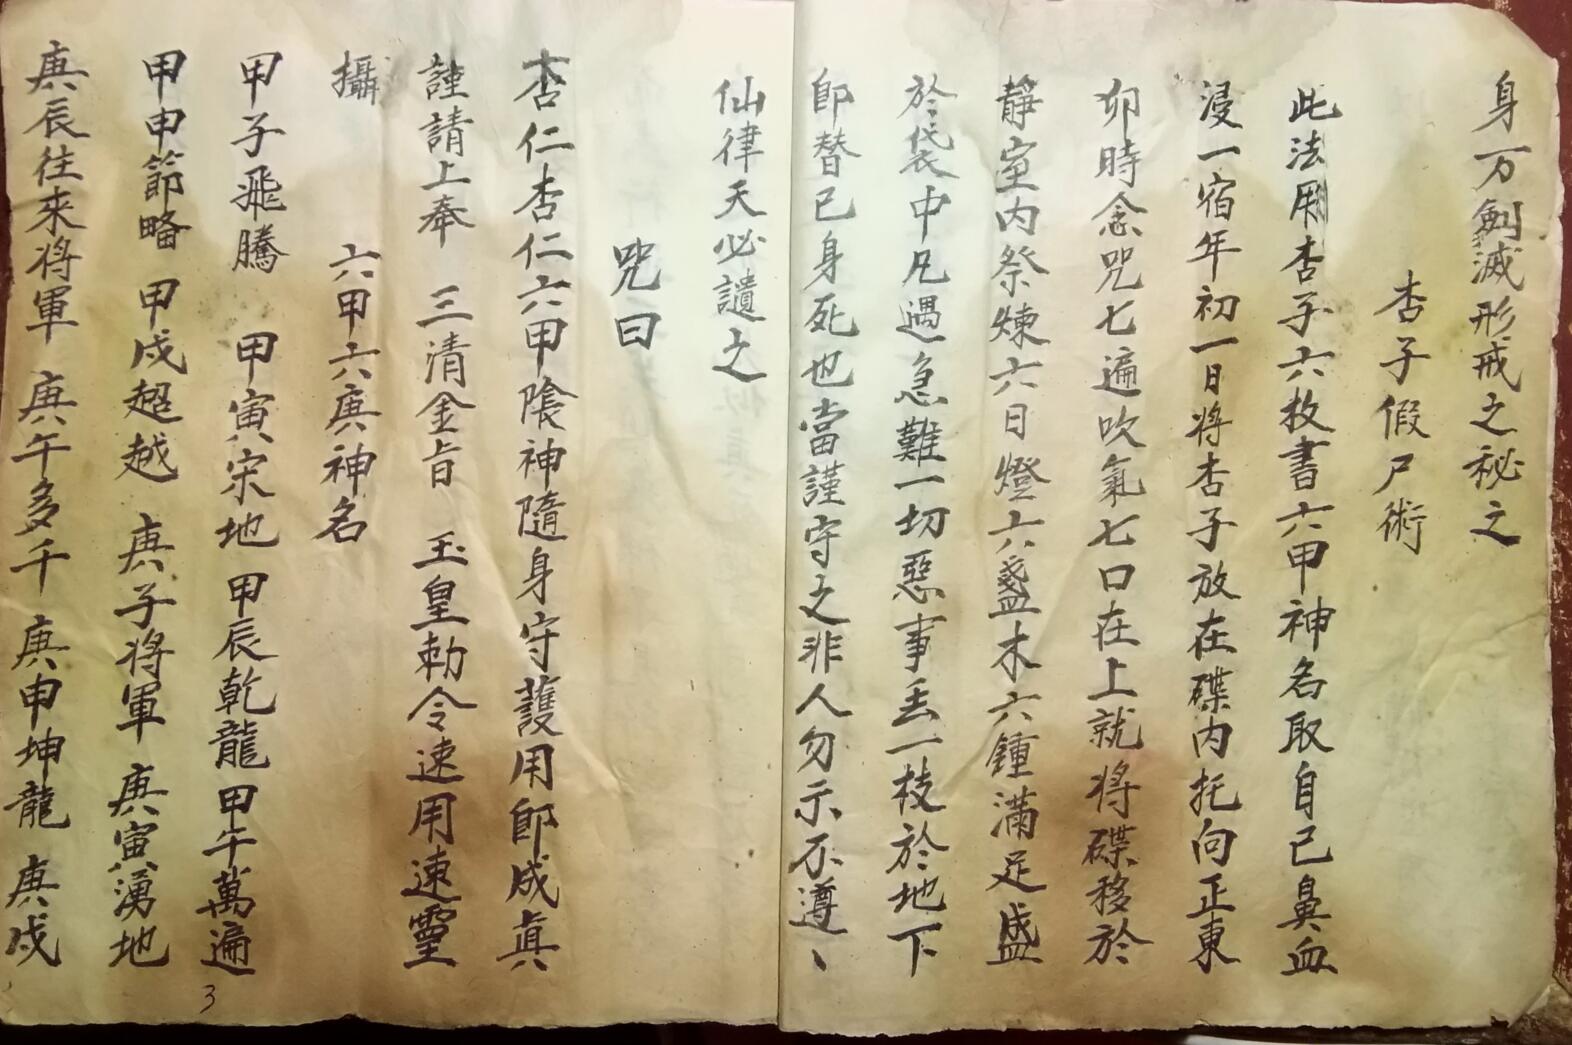 身万劍滅形戒之祕之
杏子假尸術
此法用杏子六枚書六甲神名取自己鼻血
浸一宿年初一日将杏子放在碟内托向正東
卯時念咒七遍吹氣七口在上就将碟移於
靜室内祭煉六日燈六盞木六鍾滿足盛
於袋中凡遇急難一切惡事丢一枝於地下
即替己身死也當謹守之非人勿示不遵丶
仙律天必譴之
咒曰
杏仁杏仁六甲陰神隨身守護用即成真
謹請上奉 三清金旨 玉皇勅令速用速靈
攝 六甲六庚神名
甲子飛騰 甲寅宋地 甲辰乾龍 甲午萬遍
甲申節略 甲戌超越 庚子将軍 庚寅湧地
庚辰往來将軍 庚午多千 庚申坤龍 庚戌
3